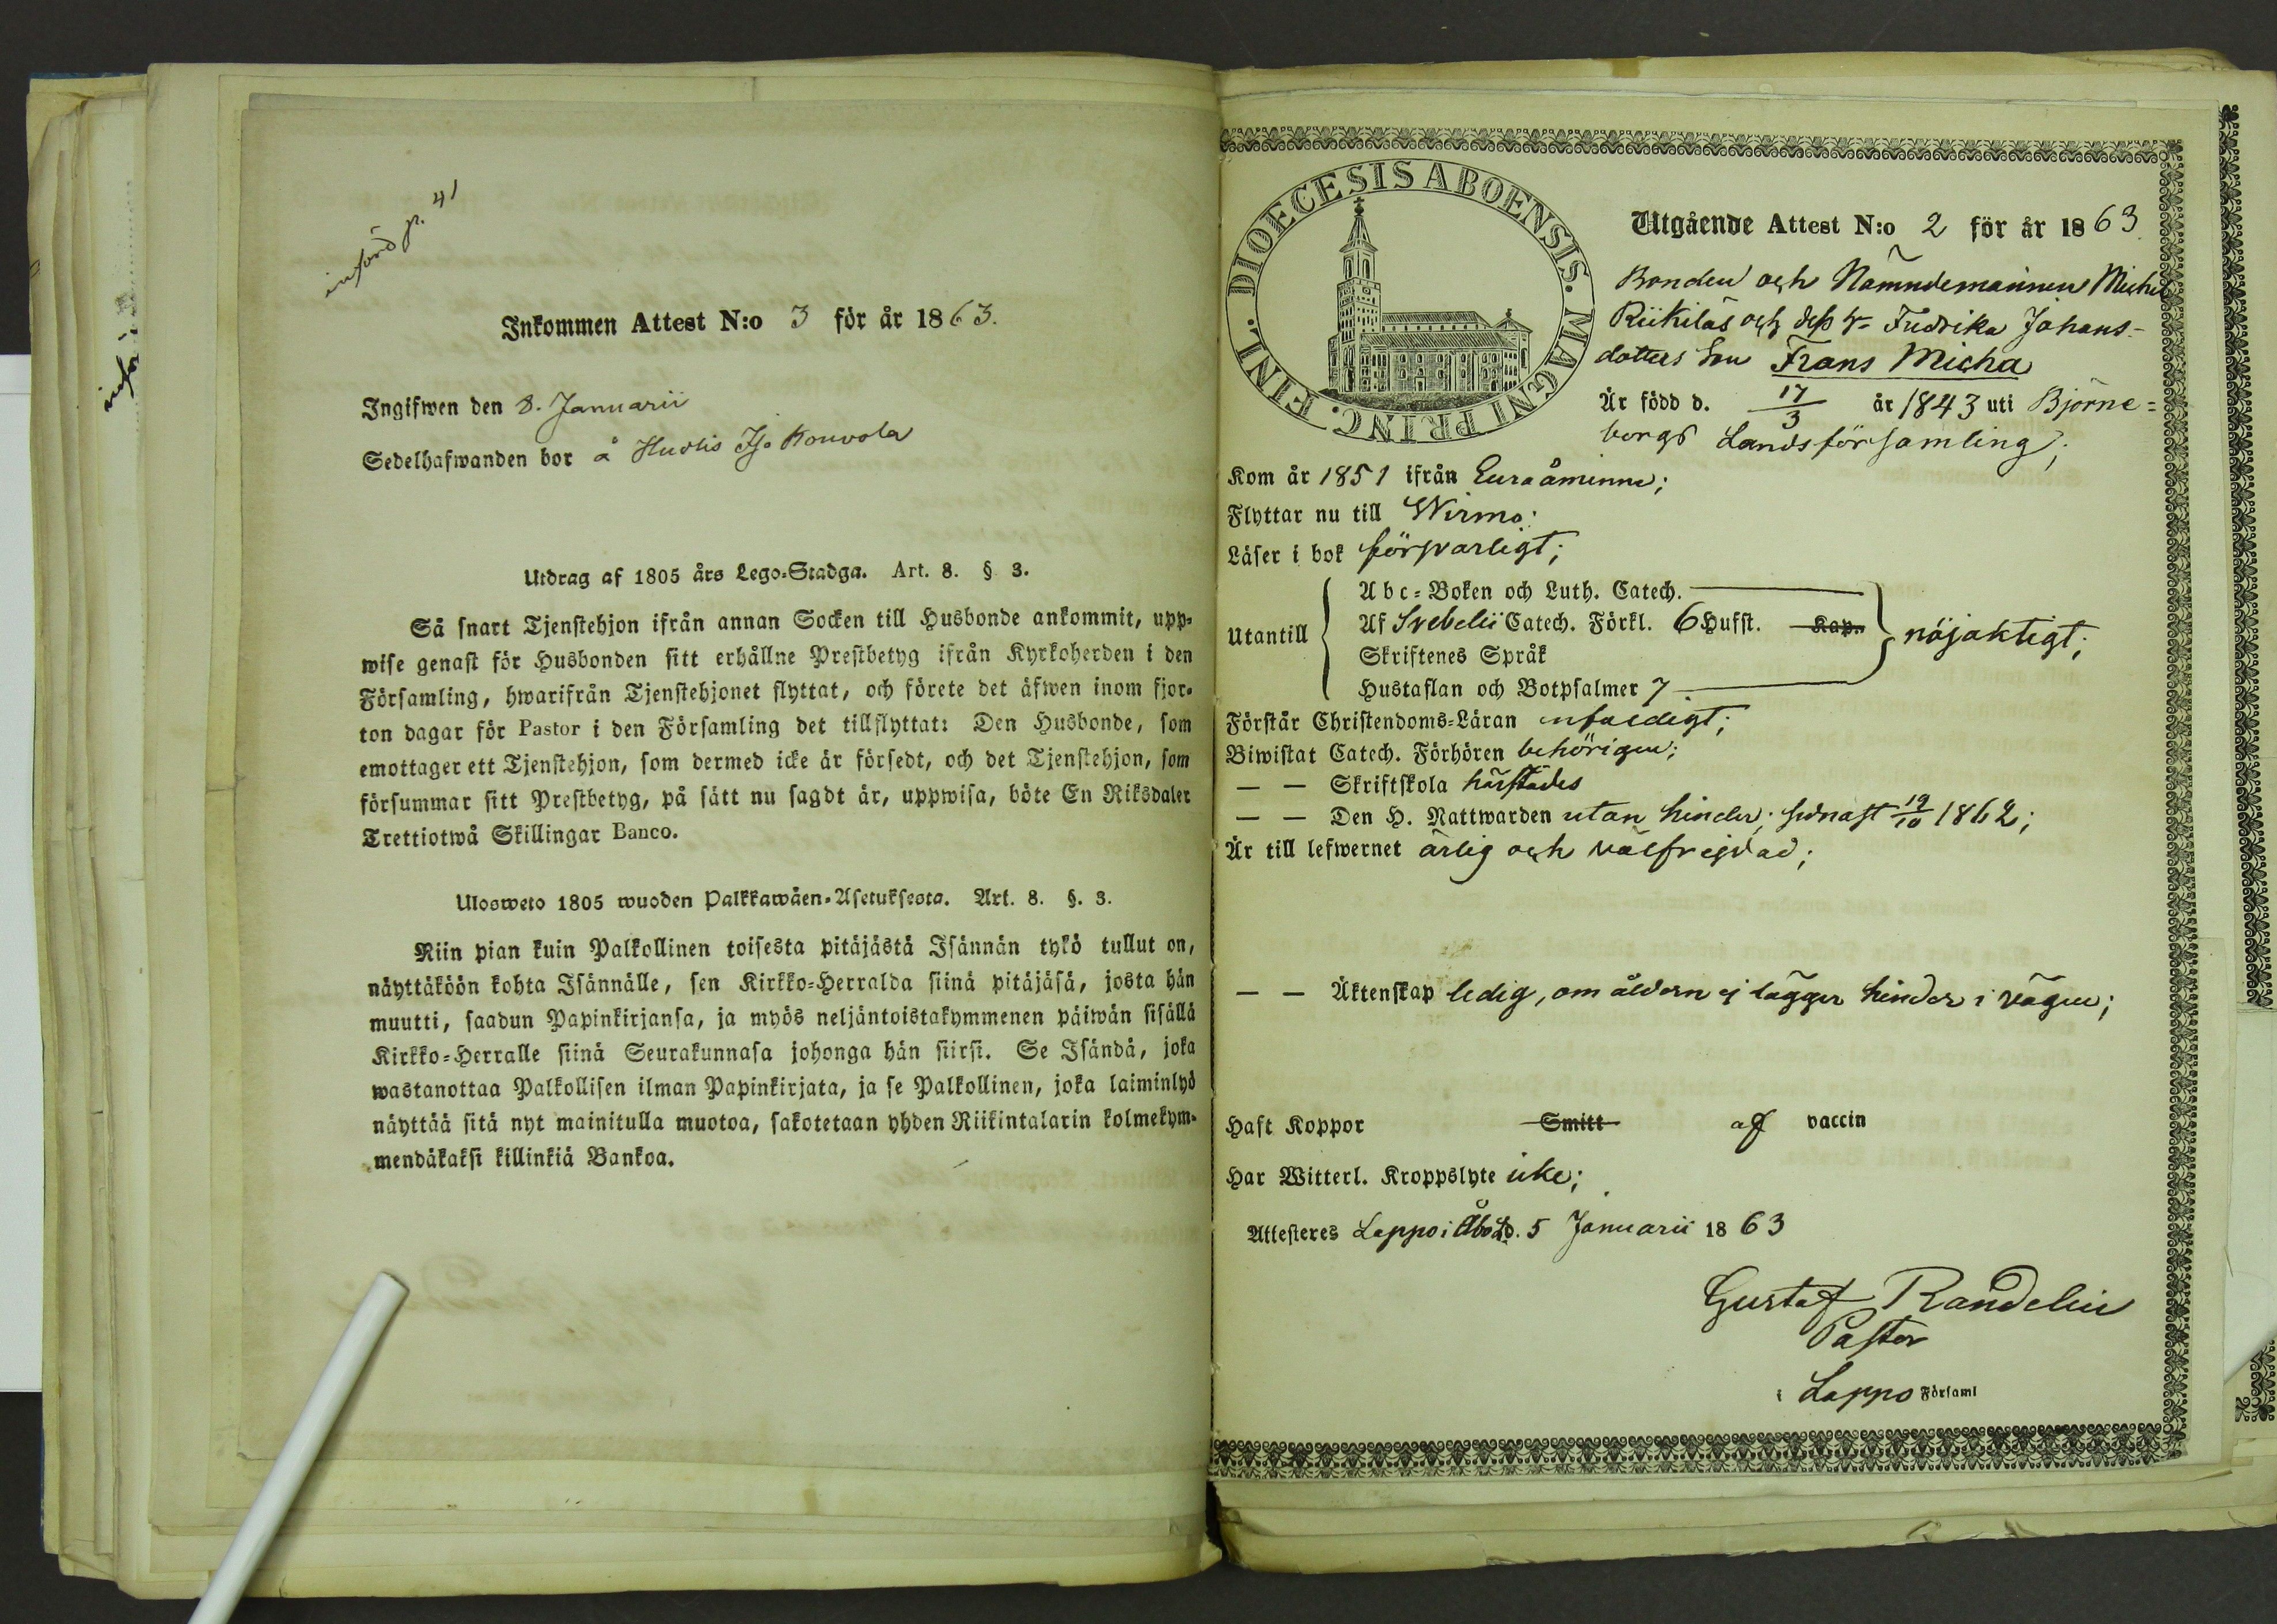 införd p. 41
Inkommen Attest N:o 3 för år 1863.
Ingifwen den 8. Januarii
Sedelhafwanden bor å Hudis Iso Kouvola
Utdrag af 1805 års Lego-Stadga. Art. 8. § 3.
Så snart Tjenstehjon ifrån annan Socken till Husbonde ankommit, upp-
wise genast för Husbonden sitt erhållne Prestbetyg ifrån Kyrkoherden i den
Församling, hwarifrån Tjenstehjonet flyttat, och förete det äfwen inom fjor-
ton dagar för Pastor i den Församling det tillflyttat: Den Husbonde, som
emottager ett Tjenstehjon, som dermed icke är försedt, och det Tjenstehjon, som
försummar sitt Prestbetyg, på sätt nu sagdt är, uppwisa, böte En Riksdaler
Trettiotwå Skillingar Banco.
Ulosweto 1805 wuoden Palkkawäen-Asetuksesta. Art. 8. §. 3.
Niin pian kuin Palkollinen toisesta pitäjästä Isännän tykö tullut on,
näyttäköön kohta Isännälle, sen Kirkko-Herralda siinä pitäjäsä, josta hän
muutti, saadun Papinkirjansa, ja myös neljäntoistakymmenen päiwän sisällä
Kirkko-Herralle siinä Seurakunnasa johonga hän siirsi. Se Isändä, joka
wastanottaa Palkollisen ilman Papinkirjata, ja se Palkollinen, joka laiminlyö
näyttää sitä nyt mainitulla muotoa, sakotetaan yhden Riikintalarin kolmekym-
mendäkaksi killinkiä Bankoa.
DIOECESIS ABOENSIS. MAGNI PRINC. FINL.
Utgående Attest N:o 2 för år 1863
Bonden och Nämndemannen Michel
Riikilas och dess h. Fredrika Johans-
dotters Son Frans Micha
Är född d. 17/3 år 1843 uti Björne=
borgs Landsförsamling;
Kom år 1851 ifrån Euraåminne;
Flyttar nu till Wirmo;
Läser i bok försvarligt;
Abc-Boken och Luth. Catech.
Utantill Af Svebelii Catech. Förkl. 6 Hufst. Kap. nöjaktigt;
Skriftenes Språk
Hustaflan och Botpsalmer 7
Förstår Christendoms-Läran enfaldigt;
Biwistat Catech. Förhören behörigen;
— — Skriftskola härstädes
— — Den H. Nattwarden utan hinder; sednast 19/10 1862;
Är till lefwernet ärlig och välfrejdad;
— — Äktenskap ledig, om åldern ej lägger hinder i vägen;
Haft Koppor Smitt af vaccin
Har Witterl. Kroppslyte icke;
Attesteres Lappo i Åbo L. d. 5 Januarii 1863
Gustaf Randelin
Pastor
i Lappo Församl